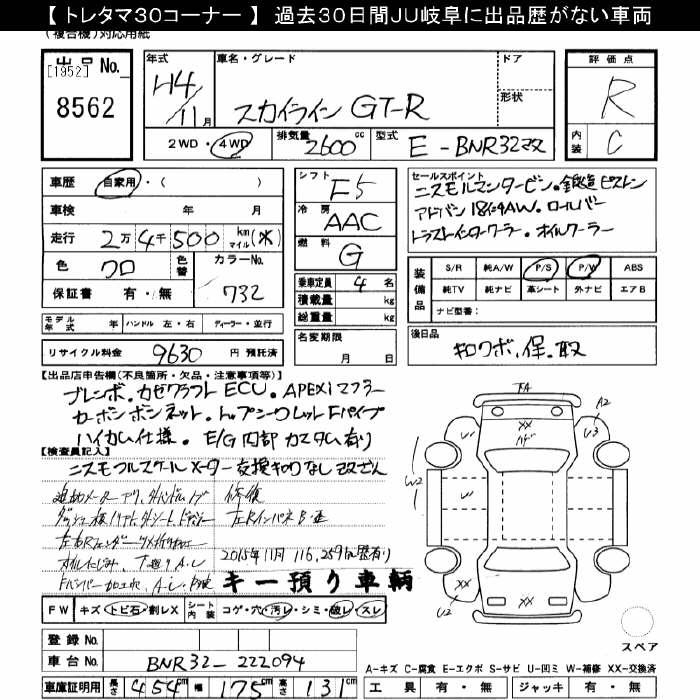 【 トレタマ30コーナー 】 過去30日間JU岐阜に出品歴がない車両
(複合機)対応用紙
出品 No.
[1952]
8562
年式
H4/11月
車名・グレード
スカイライン GT-R
ドア
形状
評価点
R
内装 C
2WD・4WD
排気量 2600 cc
型式 E-BNR32改
車歴 自家用・( )
車検 年 月
走行 2万4千500 km マイル(※)
色 クロ
色替
カラーNo. 732
保証書 有・無
シフト F5
冷房 AAC
燃料 G
乗車定員 4 名
積載量 kg
総重量 kg
セールスポイント
ニスモルマンタービン。鍛造ピストン
アドバン18インチAW。ロールバー
トラストインタークーラー。オイルクーラー
装備品
S/R 純A/W P/S P/W ABS
純TV 純ナビ 革シート 外ナビ エアB
ナビ型番:
モデル年式 年 ハンドル 左・右 ディーラー・並行
名変期限 月 日
後日品
キロクボ、保、取
リサイクル料金 9630 円 預託済
【出品店申告欄(不良箇所・欠品・注意事項等)】
ブレンボ。カゼクラフトECU。APEXiマフラー
カーボンボンネット。トップシークレットFパイプ
ハイカム仕様。E/G内部カスタム有り
【検査員記入】
ニスモフルスケールメーター交換キロなし改ざん
追加メーター
修復
左Rインパネ
2015年11月 116,259km歴有り
キー預り車輌
FW キズ・トビ石・割レX シート内装 コゲ・穴・汚レ・シミ・破レ・スレ
登録 No.
車台 No. BNR32-222094
車庫証明用 長さ 454cm 幅 175cm 高さ 131cm
FA
A2
U1
XX
ハゲ
U3
W2
W
XX
XX
U2
スペア
A-キズ C-腐食 E-エクボ S-サビ U-凹ミ W-補修 XX-交換済
工具 有・無 ジャッキ 有・無